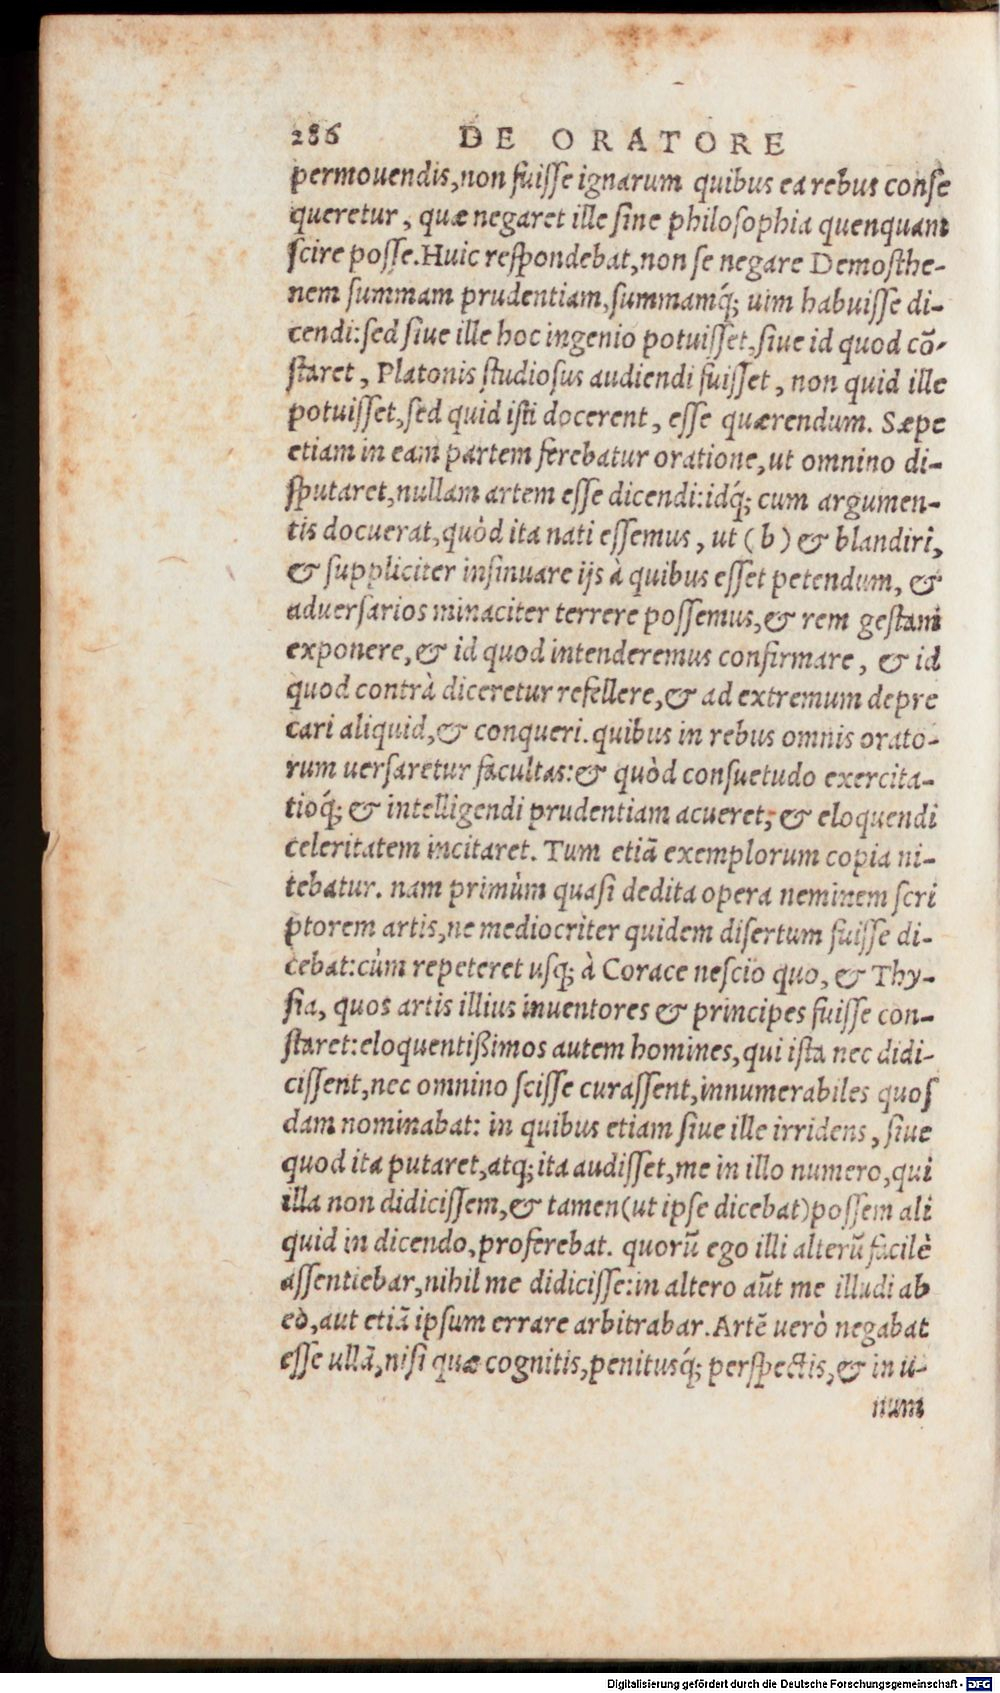 286 DE ORATORE
permouendis,non fuisse ignarum quibus ea rebus conse
queretur, quæ negaret ille sine philosophia quenquam
scire posse.Huic respondebat,non se negare Demosthe-
nem summam prudentiam,summamq́; uim habuisse di-
cendi:sed siue ille hoc ingenio potuisset,siue id quod cō-
staret, Platonis studiosus audiendi fuisset, non quid ille
potuisset,sed quid isti docerent, esse quærendum. Sæpe
etiam in eam partem ferebatur oratione,ut omnino di-
sputaret,nullam artem esse dicendi:idq́; cum argumen-
tis docuerat,quòd ita nati essemus, ut (b) & blandiri,
& suppliciter insinuare ijs à quibus esset petendum, &
aduersarios minaciter terrere possemus,& rem gestam
exponere,& id quod intenderemus confirmare, & id
quod contrà diceretur refellere,& ad extremum depre
cari aliquid,& conqueri.quibus in rebus omnis orato-
rum uersaretur facultas:& quòd consuetudo exercita-
tioq́; & intelligendi prudentiam acueret, & eloquendi
celeritatem incitaret. Tum etiā exemplorum copia ni-
tebatur. nam primùm quasi dedita opera neminem scri
ptorem artis,ne mediocriter quidem disertum fuisse di-
cebat:cùm repeteret usq; à Corace nescio quo, & Thy-
sia, quos artis illius inuentores & principes fuisse con-
staret:eloquentißimos autem homines,qui ista nec didi-
cissent,nec omnino scisse curassent,innumerabiles quos
dam nominabat: in quibus etiam siue ille irridens, siue
quod ita putaret,atq; ita audisset,me in illo numero,qui
illa non didicissem,& tamen(ut ipse dicebat)possem ali
quid in dicendo,proferebat. quorū ego illi alterū facilè
assentiebar,nihil me didicisse:in altero aūt me illudi ab
eo,aut etiā ipsum errare arbitrabar.Artē uerò negabat
esse ullā,nisi quæ cognitis,penitusq́; perspectis,& in u-
num
Digitalisierung gefördert durch die Deutsche Forschungsgemeinschaft - DFG